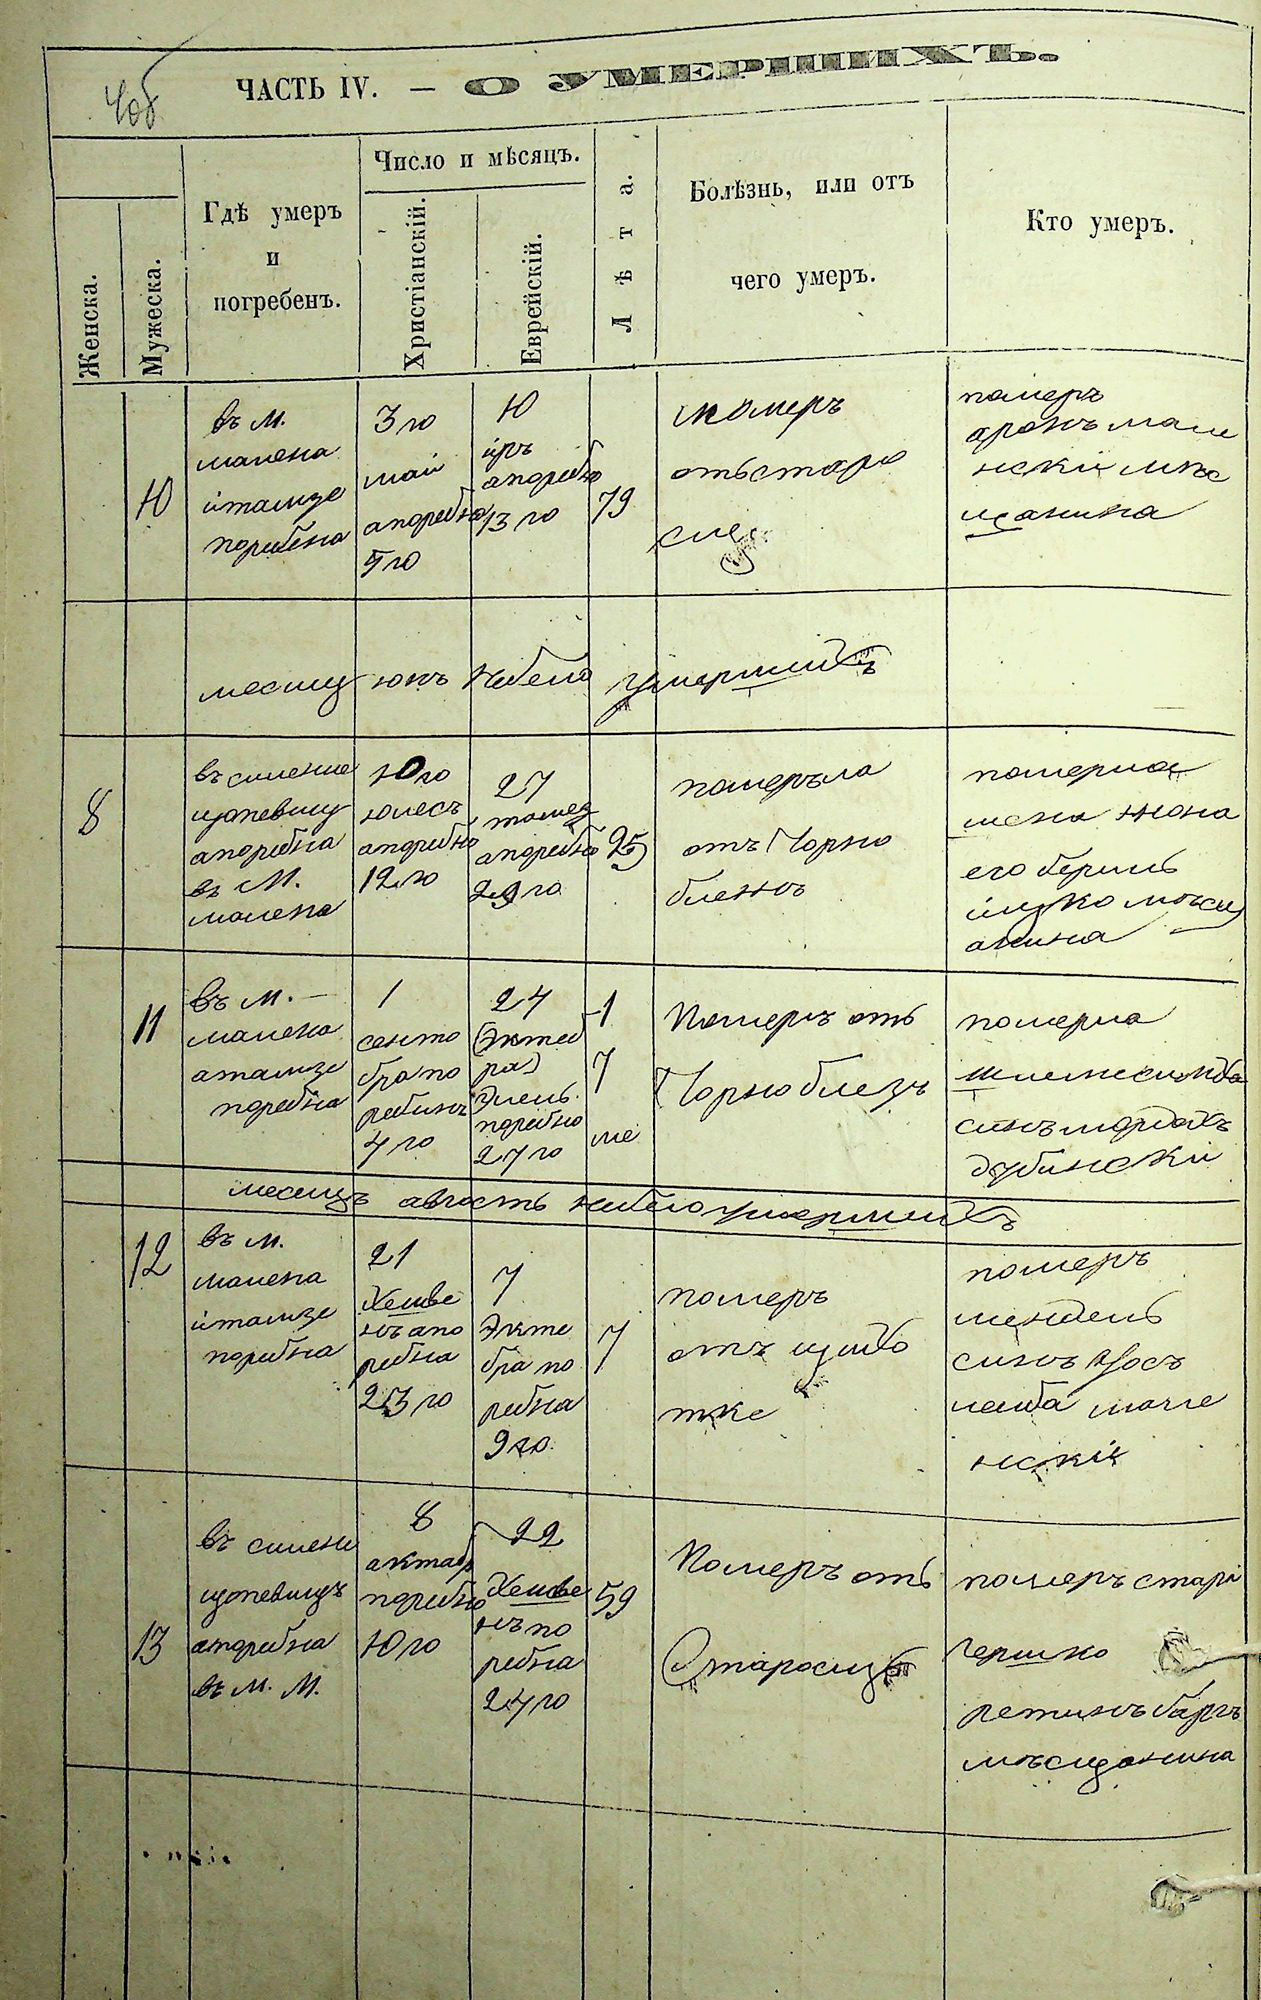 ЧАСТЬ IV. — О УМЕРШИХЪ.
Женска.
Мужеска.
Гдѣ умеръ
и
погребенъ.
Число и мѣсяцъ.
Христіанскій.
Еврейскій.
Лѣта.
Болѣзнь, или отъ
чего умеръ.
Кто умеръ.
10
въ м.
малена
итамзе
поребена
3 го
май
апоребно
5 го
10
іръ
апоребно
13 го
79
померъ
отъ старо
померъ
аронъ мале
нски мѣс
щанина
месицъ юнъ небело умершихъ
8
въ силение
щопевицу
апоребна
въ М.
малена
10 го
юлесъ
апоребно
12 го
27
тамез
апоребно
29 го
25
померъла
отъ Чорно
блезнъ
померла
жона
его берилъ
ицко мѣсщ
анина
11
въ м. —
малена
атамзе
поребна
1
сентя
бра по
ребинъ
4 го
24
(Эктеб
ра)
Элель
поребно
27 го
1
7
ме
Померъ отъ
Чорно блезъ
померла
синъ мордахъ
дубински
месецъ авгость небело умершихъ
12
въ м.
малена
итамзе
поребна
21
Хешве
нъ апо
ребна
23 го
7
Экте
бра по
ребна
9 го.
7
померъ
отъ щихо
тке
померъ
мендель
синъ Йось
лейба мале
нскій
13
въ силени
щопевицъ
апоребна
въ м. М.
8
актабр
поребно
10 го
22
Хешве
нъ по
ребна
24 го
59
Померъ отъ
померъ стари
Гершко
ретинъбаргъ
мѣсщанина